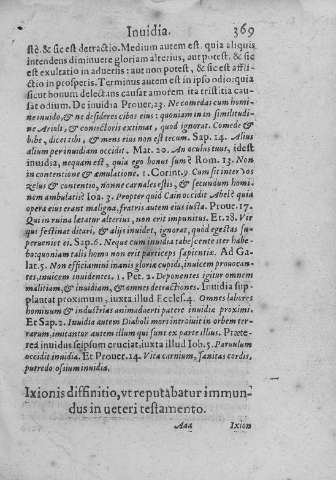 Inuidia. 369
stè. & sic est detractio. Medium autem est. quia aliquis
intendens diminuere gloriam alterius, aut potest. & sic
est exultatio in aduersis: aut non potest, & sic est afflic-
ctio in prosperis. Terminus autem est in ipso odio: quia
sicut bonum delectans causat amorem ita tristitia cau-
sat odium. De inuidia Prouer. 23. Ne comedas cum homi-
ne inuido, & ne desideres cibos eius: quoniam in similitudi-
ne Arioli, & coniectoris extimat, quod ignorat. Comede &
bibe, dicet tibi, & mens eius non est tecum. Sap. 14. Alius
alium per inuidiam occidit. Mat. 20. An oculus tuus, idest
inuidia, nequam est, quia ego bonus sum? Rom. 13. Non
in contentione & emulatione. 1. Corint. 3 Cum sit inter vos
zelus & contentio, nonne carnales estis, & secundum homi-
nem ambulatis? Ioa. 3. Propter quid Cain occidit Abel? quia
opera eius erant maligna, fratris autem eius iusta. Prou. 17.
Qui in ruina lætatur alterius, non erit impunitus. Et. 28. Vir
qui festinat ditari, & alijs inuidet, ignorat, quod egestas su-
perueniet ei. Sap. 6. Neque cum inuidia tabescente iter habe-
ba: quoniam talis homo non erit particeps sapientiæ. Ad Ga-
lat. 5. Non efficiamini inanis gloriæ cupidi, inuicem prouocan-
tes, inuicem inuidentes. 1. Pet. 2. Deponentes igitur omnem
malitiam, & inuidiam, & omnes detractiones. Inuidia sup-
plantat proximum, iuxta illud Eccles. 4. Omnes labores
hominum & industrias animaduerti patere inuidiæ proximi.
Et Sap. 2. Inuidia autem Diaboli mors introiuit in orbem ter-
rarum, imitantur autem illum qui sunt ex parte illius. Præte-
rea inuidus seipsum cruciat, iuxta illud Iob. 5. Paruulum
occidit inuidia. Et Prouer. 14. Vita carnium, sanitas cordis,
putredo ossium inuidia.
Ixionis diffinitio, vt reputabatur immun-
dus in ueteri testamento.
Aaa Ixion